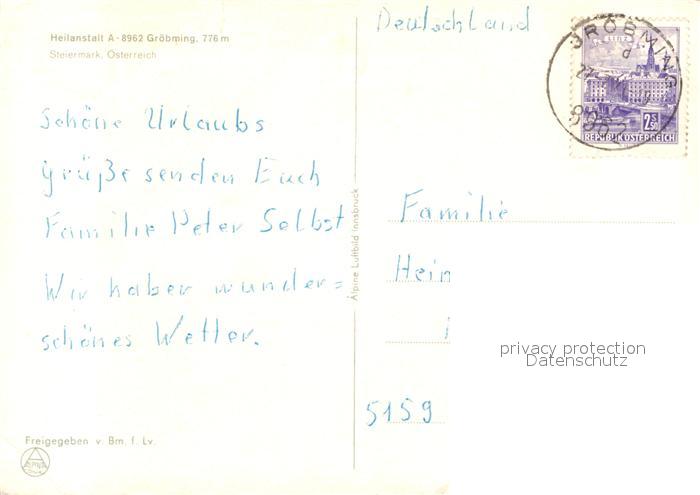 Heilanstalt A-8962 Gröbming, 776 m
Steiermark, Österreich
Schöne Urlaubs
grüße senden Euch
Familie Peter Selbst
Wir haben wunder=
schönes Wetter.
Freigegeben v. Bm. f. Lv.
Alpine Luftbild Innsbruck
Deutschland
GRÖBMING
8962
LINZ
2S50
REPUBLIK ÖSTERREICH
Familie
Hein
5159
privacy protection
Datenschutz